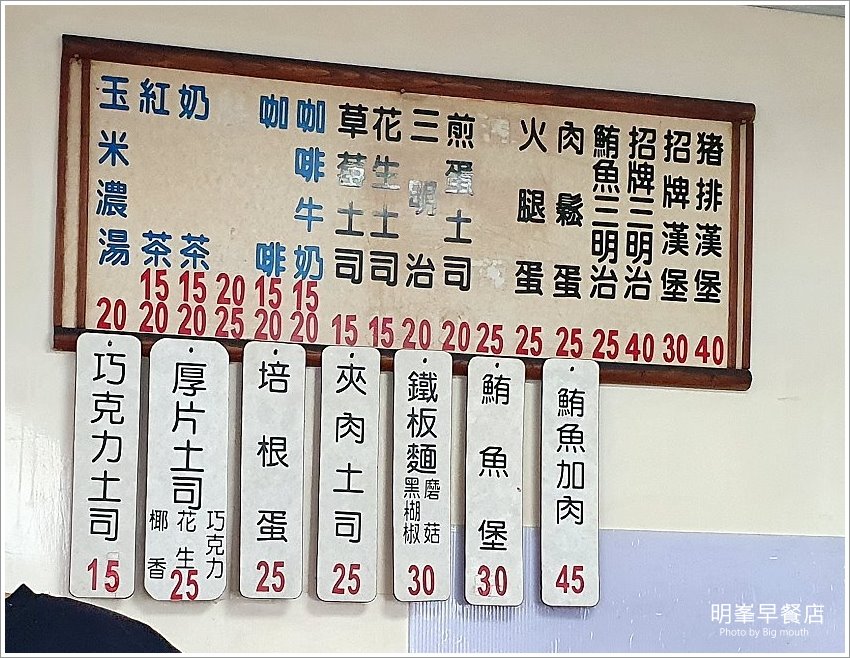 猪排漢堡
40
招牌漢堡
30
招牌三明治
40
鮪魚三明治
25
肉鬆蛋
25
火腿蛋
25
25
煎蛋土司
20
三明治
20
花生土司
15
草莓土司
15
咖啡牛奶
15
20
咖啡
15
20
20
25
奶茶
15
20
紅茶
15
20
玉米濃湯
20
鮪魚加肉
45
鮪魚堡
30
鐵板麵
磨菇
黑楜椒
30
夾肉土司
25
培根蛋
25
厚片土司
巧克力
花生
椰香
25
巧克力土司
15
明峯早餐店
Photo by Big mouth